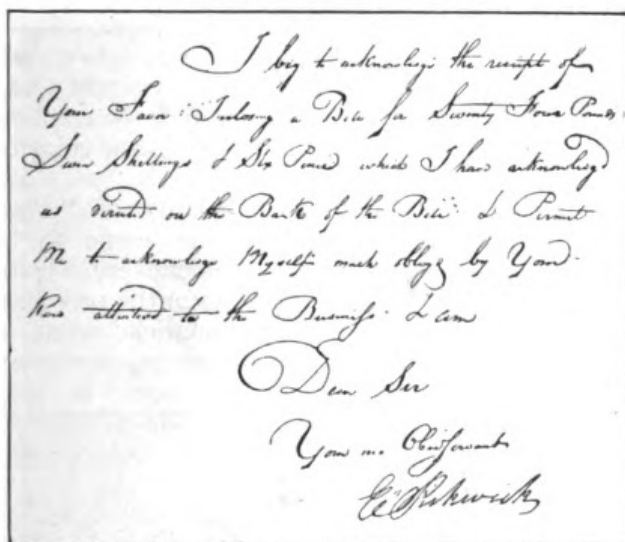 I beg to acknowledge the receipt of
Your Favor Inclosing a Bill for Twenty Four Pounds
Seven Shillings & Six Pence which I have acknowledg'd
as directed on the Back of the Bill & Permit
Me to acknowledge Myself much oblig'd by Your
Kind attention to the Business I am
Dear Sir
Your mo. Obed Servant
Pickwick